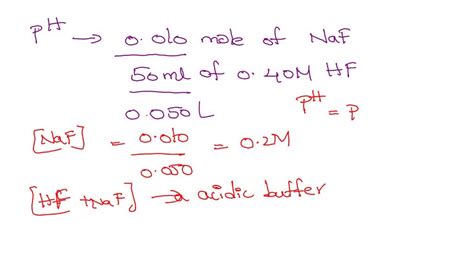 pH → 0.010 mole of NaF
50ml of 0.40M HF
0.050L
pH = P
[NaF] = 0.010 / 0.050 = 0.2M
[HF + NaF] → acidic buffer